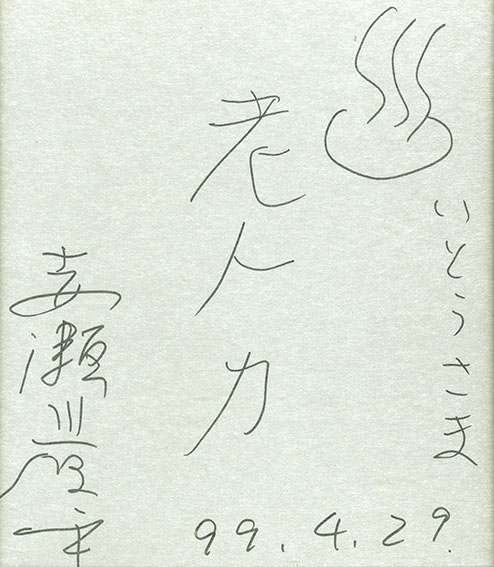 ♨いとうさま
老人力
赤瀬川原平
99.4.29.